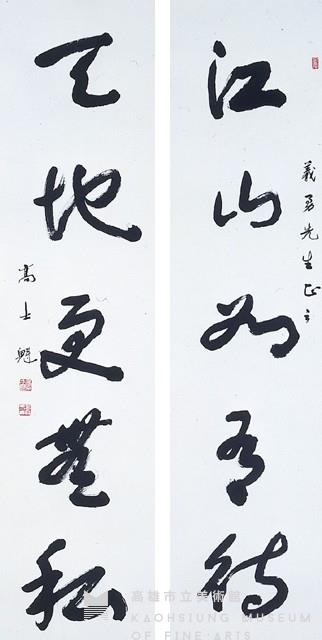 義勇先生正之
江山如有待
天地更無私
高士魁
高雄市立美術館
KAOHSIUNG MUSEUM
OF FINE ARTS